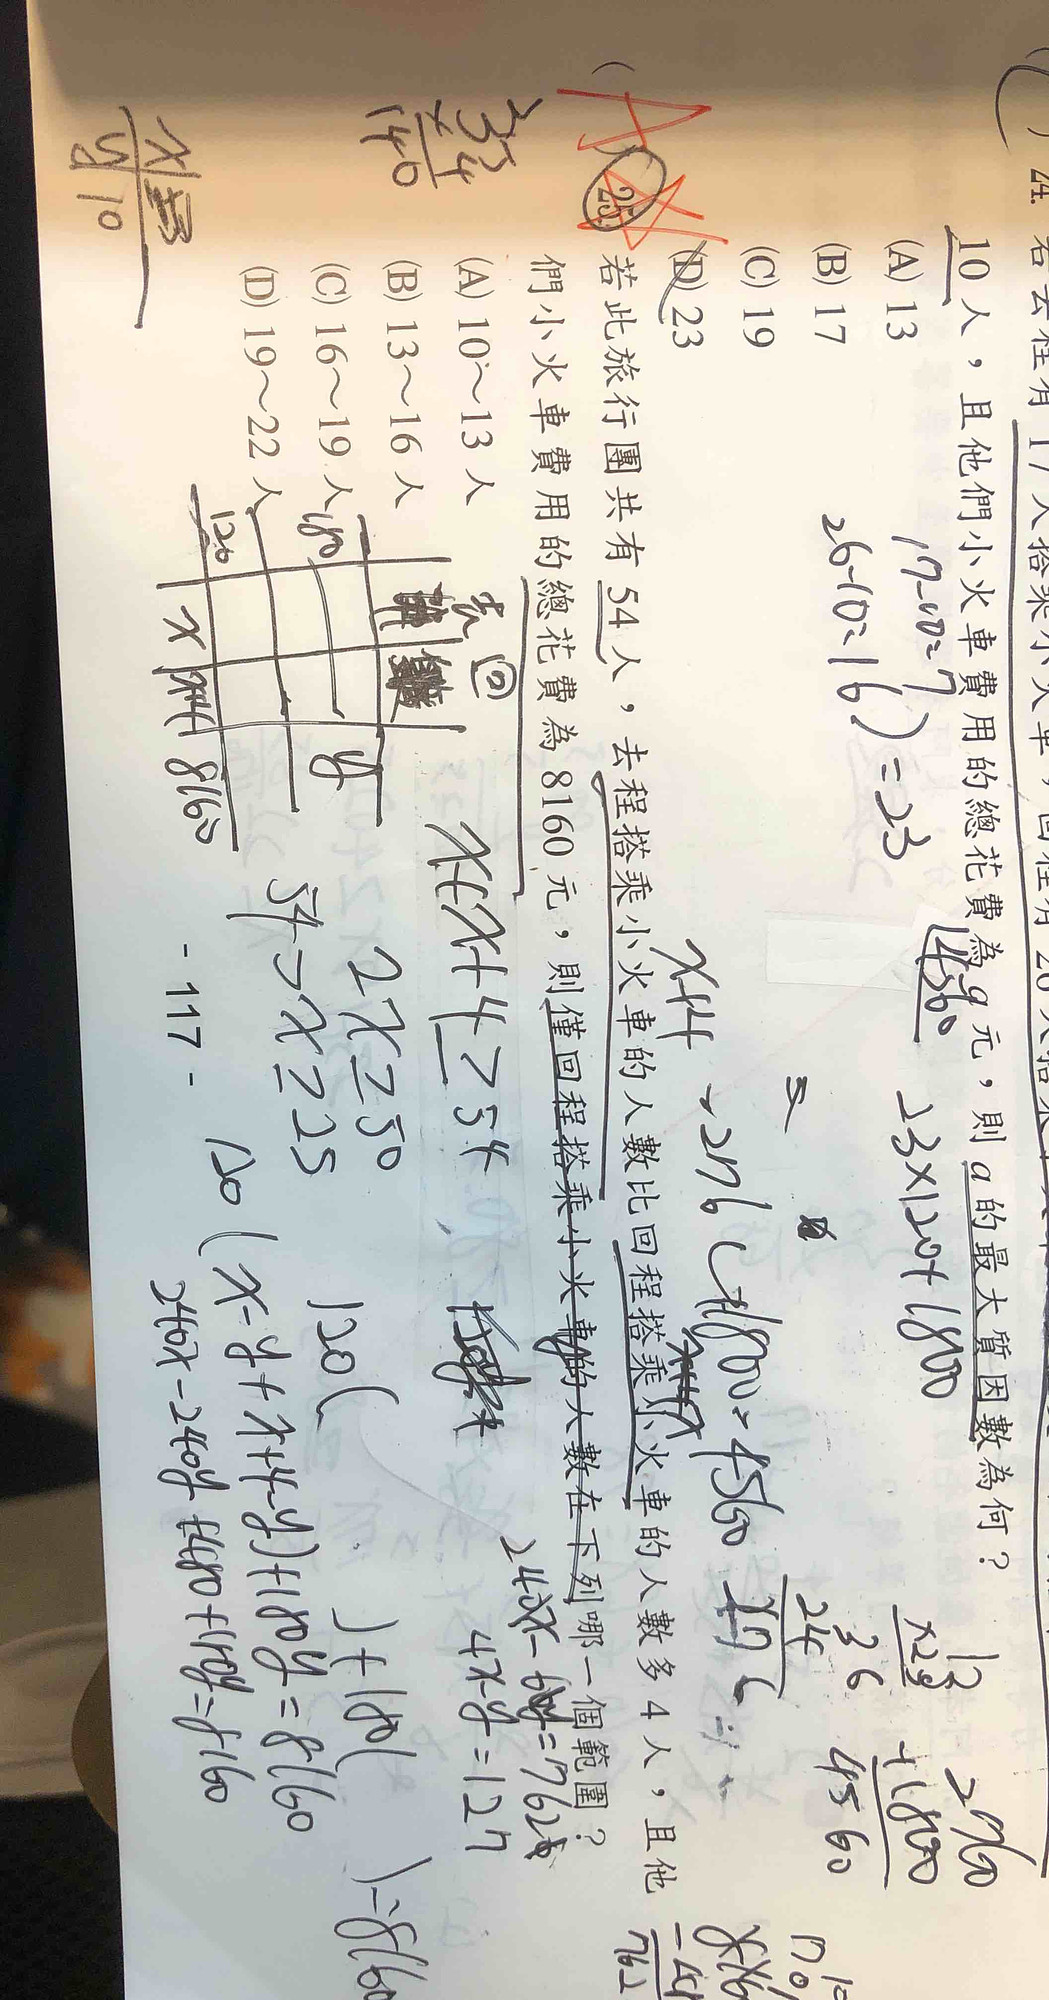 24. 若去程有17人搭乘小火車，回程有26人搭乘
10人，且他們小火車費用的總花費為a元，則a的最大質因數為何？
(A) 13
(B) 17
(C) 19
(D) 23
17-10=7
26-10=16
)=23
4560
23×120+1800
2760
+1800
4560
12
×23
36
24
276
→276 +1800=4560
25. 若此旅行團共有54人，去程搭乘小火車的人數比回程搭乘小火車的人數多4人，且他
們小火車費用的總花費為8160元，則僅回程搭乘小火車的人數在下列哪一個範圍？
(A) 10～13人
(B) 13～16人
(C) 16～19人
(D) 19～22人
A
x+4
35
×4
140
去 回
180
y
120
x x+4 8160
x+x+4≥54
2x≥50
54→x≥25
120( )+180( )=8160
120(x-y+x+4-y)+180y=8160
240x-240y+480+180y=8160
240x-60y=7620
4x-y=127
x
y 10
- 117 -